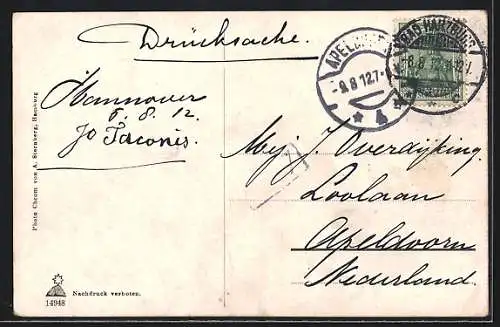 Drücksache.
Hannover
6.8.12.
Jo Taconis.
Mej. J. Overdijking.
Loolaan
Apeldoorn
Nederland.
APELDOORN
-9.8.12.7-
4
BAD HARZBURG
8.8.12
Photo Chrom von A. Sternberg, Hamburg
14948
Nachdruck verboten.